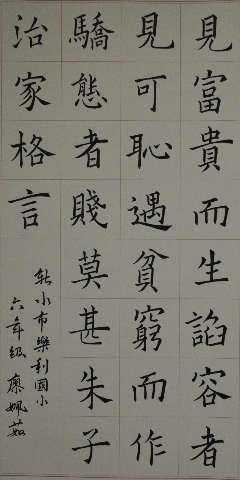 見富貴而生諂容者
見可恥遇貧窮而作
驕態者賤莫甚朱子
治家格言
新水市樂利國小
六年級廖姵茹